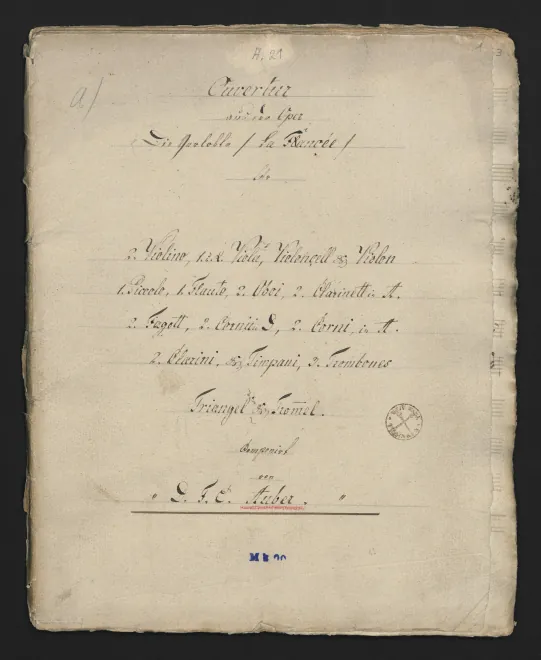 H. 21
a)
Ouvertur
aus der Oper
Die Verlobte / La Fiancée /
für
2. Violino, 1. & 2. Viola, Violoncell & Violon
1. Piccolo, 1. Flauto, 2. Oboi, 2. Clarinett in A.
2. Fagott, 2. Corni in D, 2. Corni, in A.
2. Clarini, & Timpani, 3. Trombones
Triangel & Trom̅el.
Componirt
von
" D. F. E. Auber. "